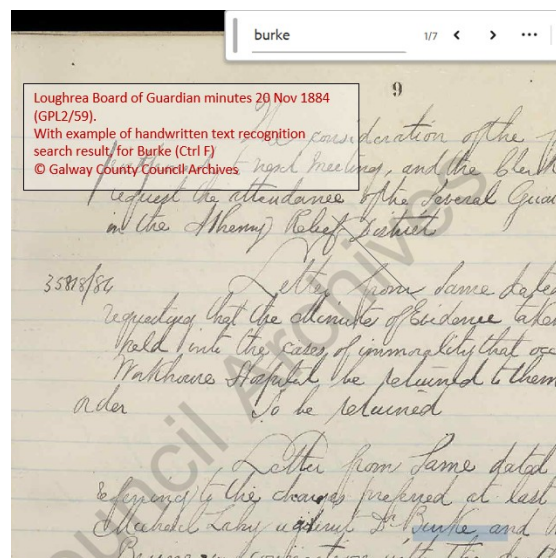 burke
1/7
9
Loughrea Board of Guardian minutes 20 Nov 1884
(GPL2/59).
With example of handwritten text recognition
search result, for Burke (Ctrl F)
© Galway County Council Archives
consideration of the
next meeting, and the Clerk
request the attendance of the Several
in the Athenry Relief District
Letter from Same dated
requesting that the Minutes of Evidence taken
held into the cases of immorality that
Workhouse Hospital be returned to them
order To be returned
Letter from Same dated
to the charges preferred at last
Michael against Dr Burke and
Council Archives